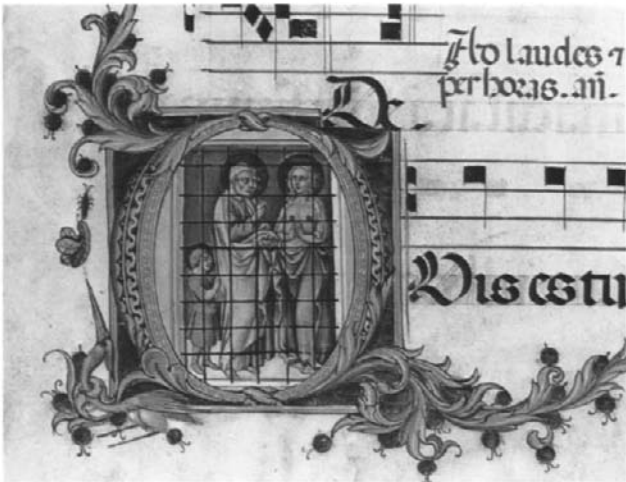 Ad laudes ⁊
per horas. añ.
De.
QUis es tu